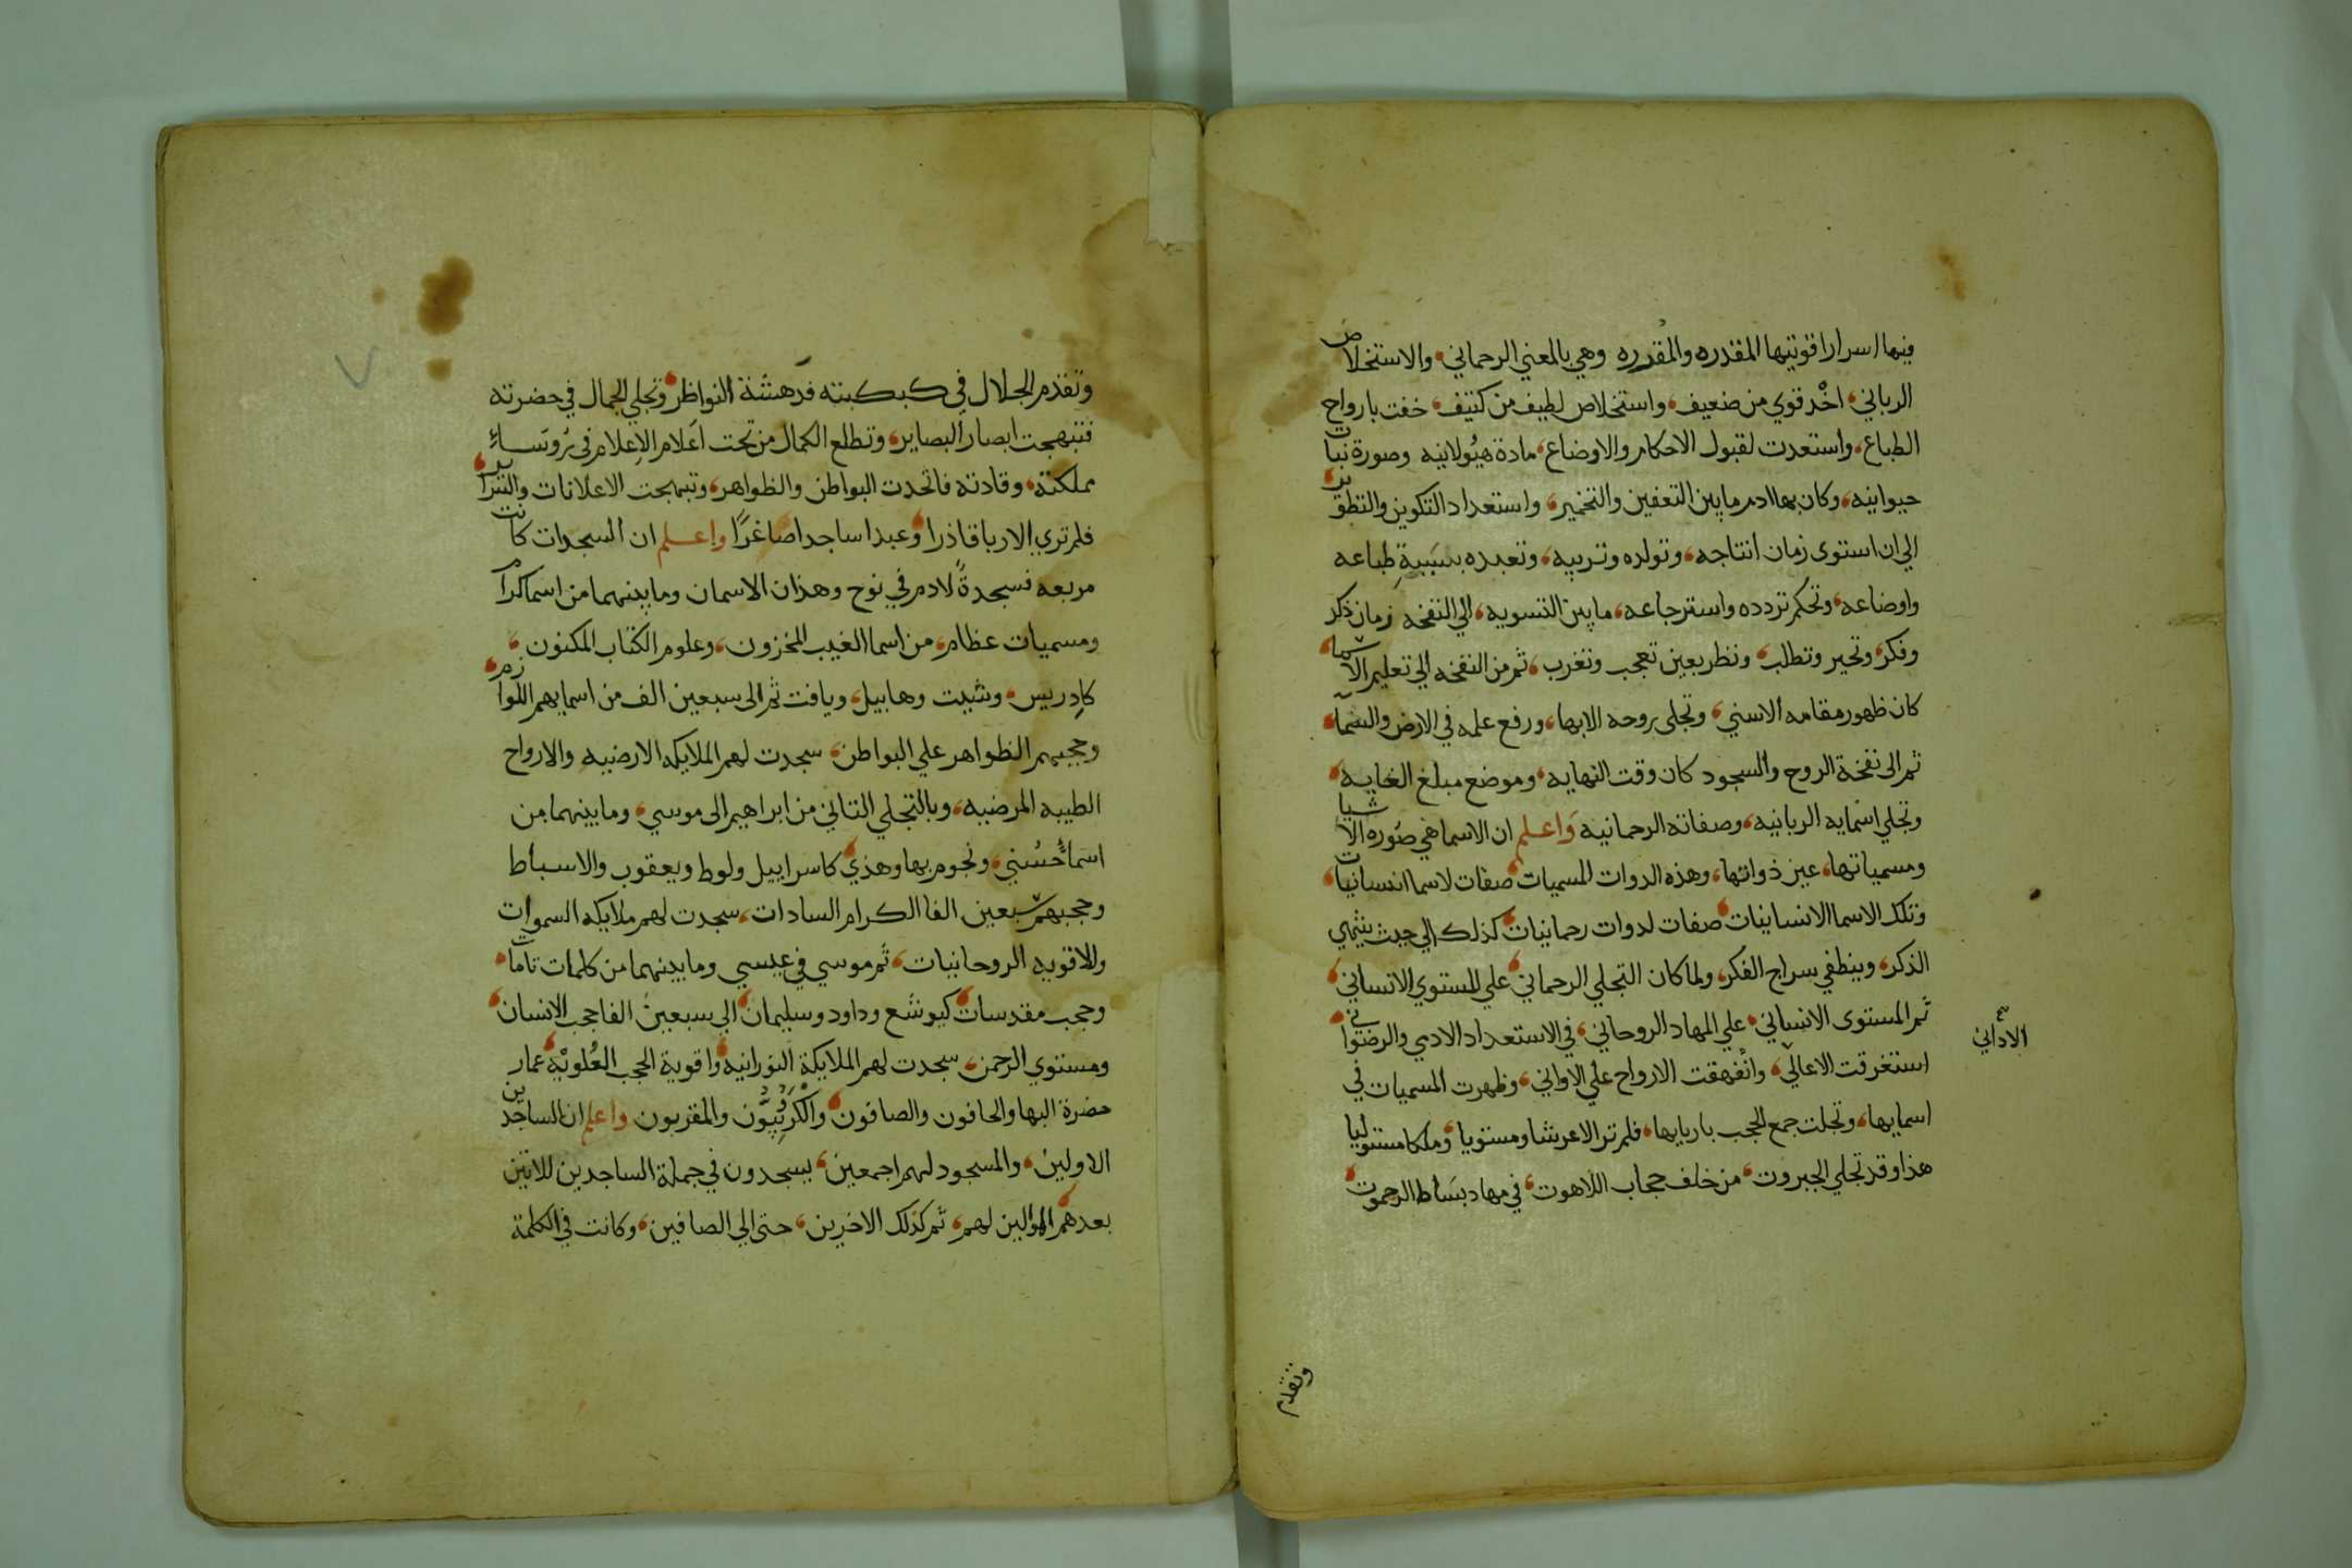 فيها اسرار اقويتها المقدره والمقدره وهي بالمعني الرحماني، والاستخلاص
الرباني، اخذ قوي من ضعيف، واستخلاص لطيف من كثيف، خفت بارواح
الطباع، واستعدت لقبول الاحكام والاوضاع، مادة هيولانيه وصورة نبات
حيوانيه، وكان بها ادم ما بين التعفين والتخمير، واستعداد التكوين والتطور
الي ان استوى زمان انتاجه، وتولده وتربيه، وتعبده بسببية طباعه
واوضاعه، وتحكم تردده واسترجاعه، ما بين التسويه، الي النفخه زمان ذكر
وفكر، وتحير وتطلب، ونظر بعين تعجب وتغرب، ثم من النفخه الي تعليم الاسما
كان ظهور مقامه الاسني، وتجلى روحه الابها، ورفع علمه في الارض والسما،
ثم الى نفخة الروح والسجود كان وقت النهايه، وموضع مبلغ الغايه،
وتجلي اسمايه الربانيه، وصفاته الرحمانيه واعلم ان الاسما هي صوره الاشيا
ومسمياتها، عين ذواتها، وهذه الدوات المسميات صفات لاسما انسانيات
وتلك الاسما الانسانيات صفات لدوات رحمانيات كذلك الي حيث ينتهي
الذكر، وينطفي سراج الفكر، ولما كان التجلي الرحماني، علي المستوي الانساني
ثم المستوى الانساني، علي المهاد الروحاني، في الاستعداد الادمي والرضواني
الاداني
استغرقت الاعالي، وانفهقت الارواح علي الاواني، وظهرت المسميات في
اسمايها، وتجلت جمع الحجب باربابها، فلم تر الا عرشا ومستويا وملكا مستوليا
هذا وقد تجلي الجبروت، من خلف حجاب اللاهوت، في مهاد بساط الرحموت
وتقدم
وتقدم الجلال في كبكبته فدهشة النواظر وتجلي الجمال في حضرته
فتبهجت ابصار البصاير، وتطلع الكمال من تحت اعلام الاعلام في روساء
مملكته، وقادته فاتحدت البواطن والظواهر، وتبهجت الاعلانات والسراير
فلم تري الا ربا قادرا وعبدا ساجدا صاغرا واعلم ان السجدات كانت
مربعه فسجدة لادم في نوح وهذان الاسمان وما بينهما من اسما كرام
ومسميات عظام، من اسما الغيب المخزون، وعلوم الكتاب المكنون،
كادريس، وشيت وهابيل، ويافت ثم الى سبعين الف من اسمايهم اللوازم
وحجبهم الظواهر علي البواطن، سجدت لهم الملايكه الارضيه والارواح
الطيبه المرضيه، وبالتجلي الثاني من ابراهيم الى موسي، وما بينهما من
اسما حسني، ونجوم بها وهدي كاسراييل ولوط ويعقوب والاسباط
وحجبهم سبعين الفا الكرام السادات، سجدت لهم ملايكه السموات
والاقويه الروحانيات، ثم موسي في عيسي وما بينهما من كلمات تامات
وحجب مقدسات كيوشع وداود وسليمان الي سبعين الفا حجب الانسان
ومستوي الرحمن، سجدت لهم الملايكة النورانيه واقوية الحجب العلويه عمار
حضرة البها والحافون والصافون والكروبيون والمقربون واعلم ان الساجدين
الاولين، والمسجود لهم اجمعين، يسجدون في جملة الساجدين للاتين
بعدهم الموالين لهم، ثم كذلك الاخرين، حتى الي الصافين، وكانت في الكلمة